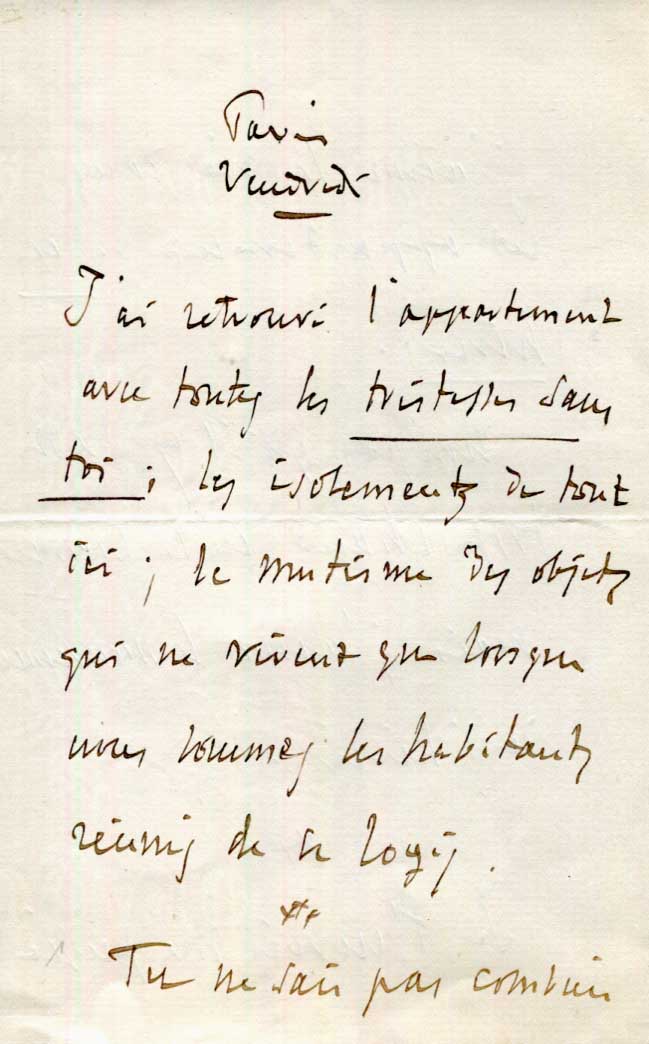 Paris
Vendredi
J'ai retrouvé l'appartement
avec toutes les tristesses sans
toi ; les isolements de tout
ici ; le mutisme des objets
qui ne vivent que lorsque
nous sommes les habitants
réunis de ce logis.
Tu ne sais pas combien